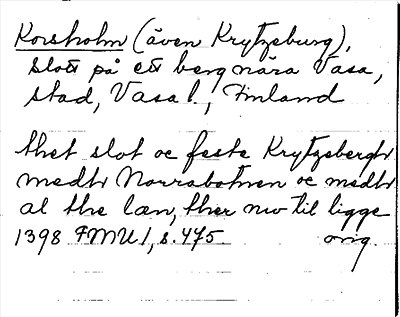 Korsholm (även Krytzeburg),
slott på ett berg nära Vasa,
stad, Vasa l., Finland
thet slot oc feste Krytzebergh
medh Norrabotnen oc medh
al the læn, ther nw til ligge
1398 FMU 1, s. 475 orig.